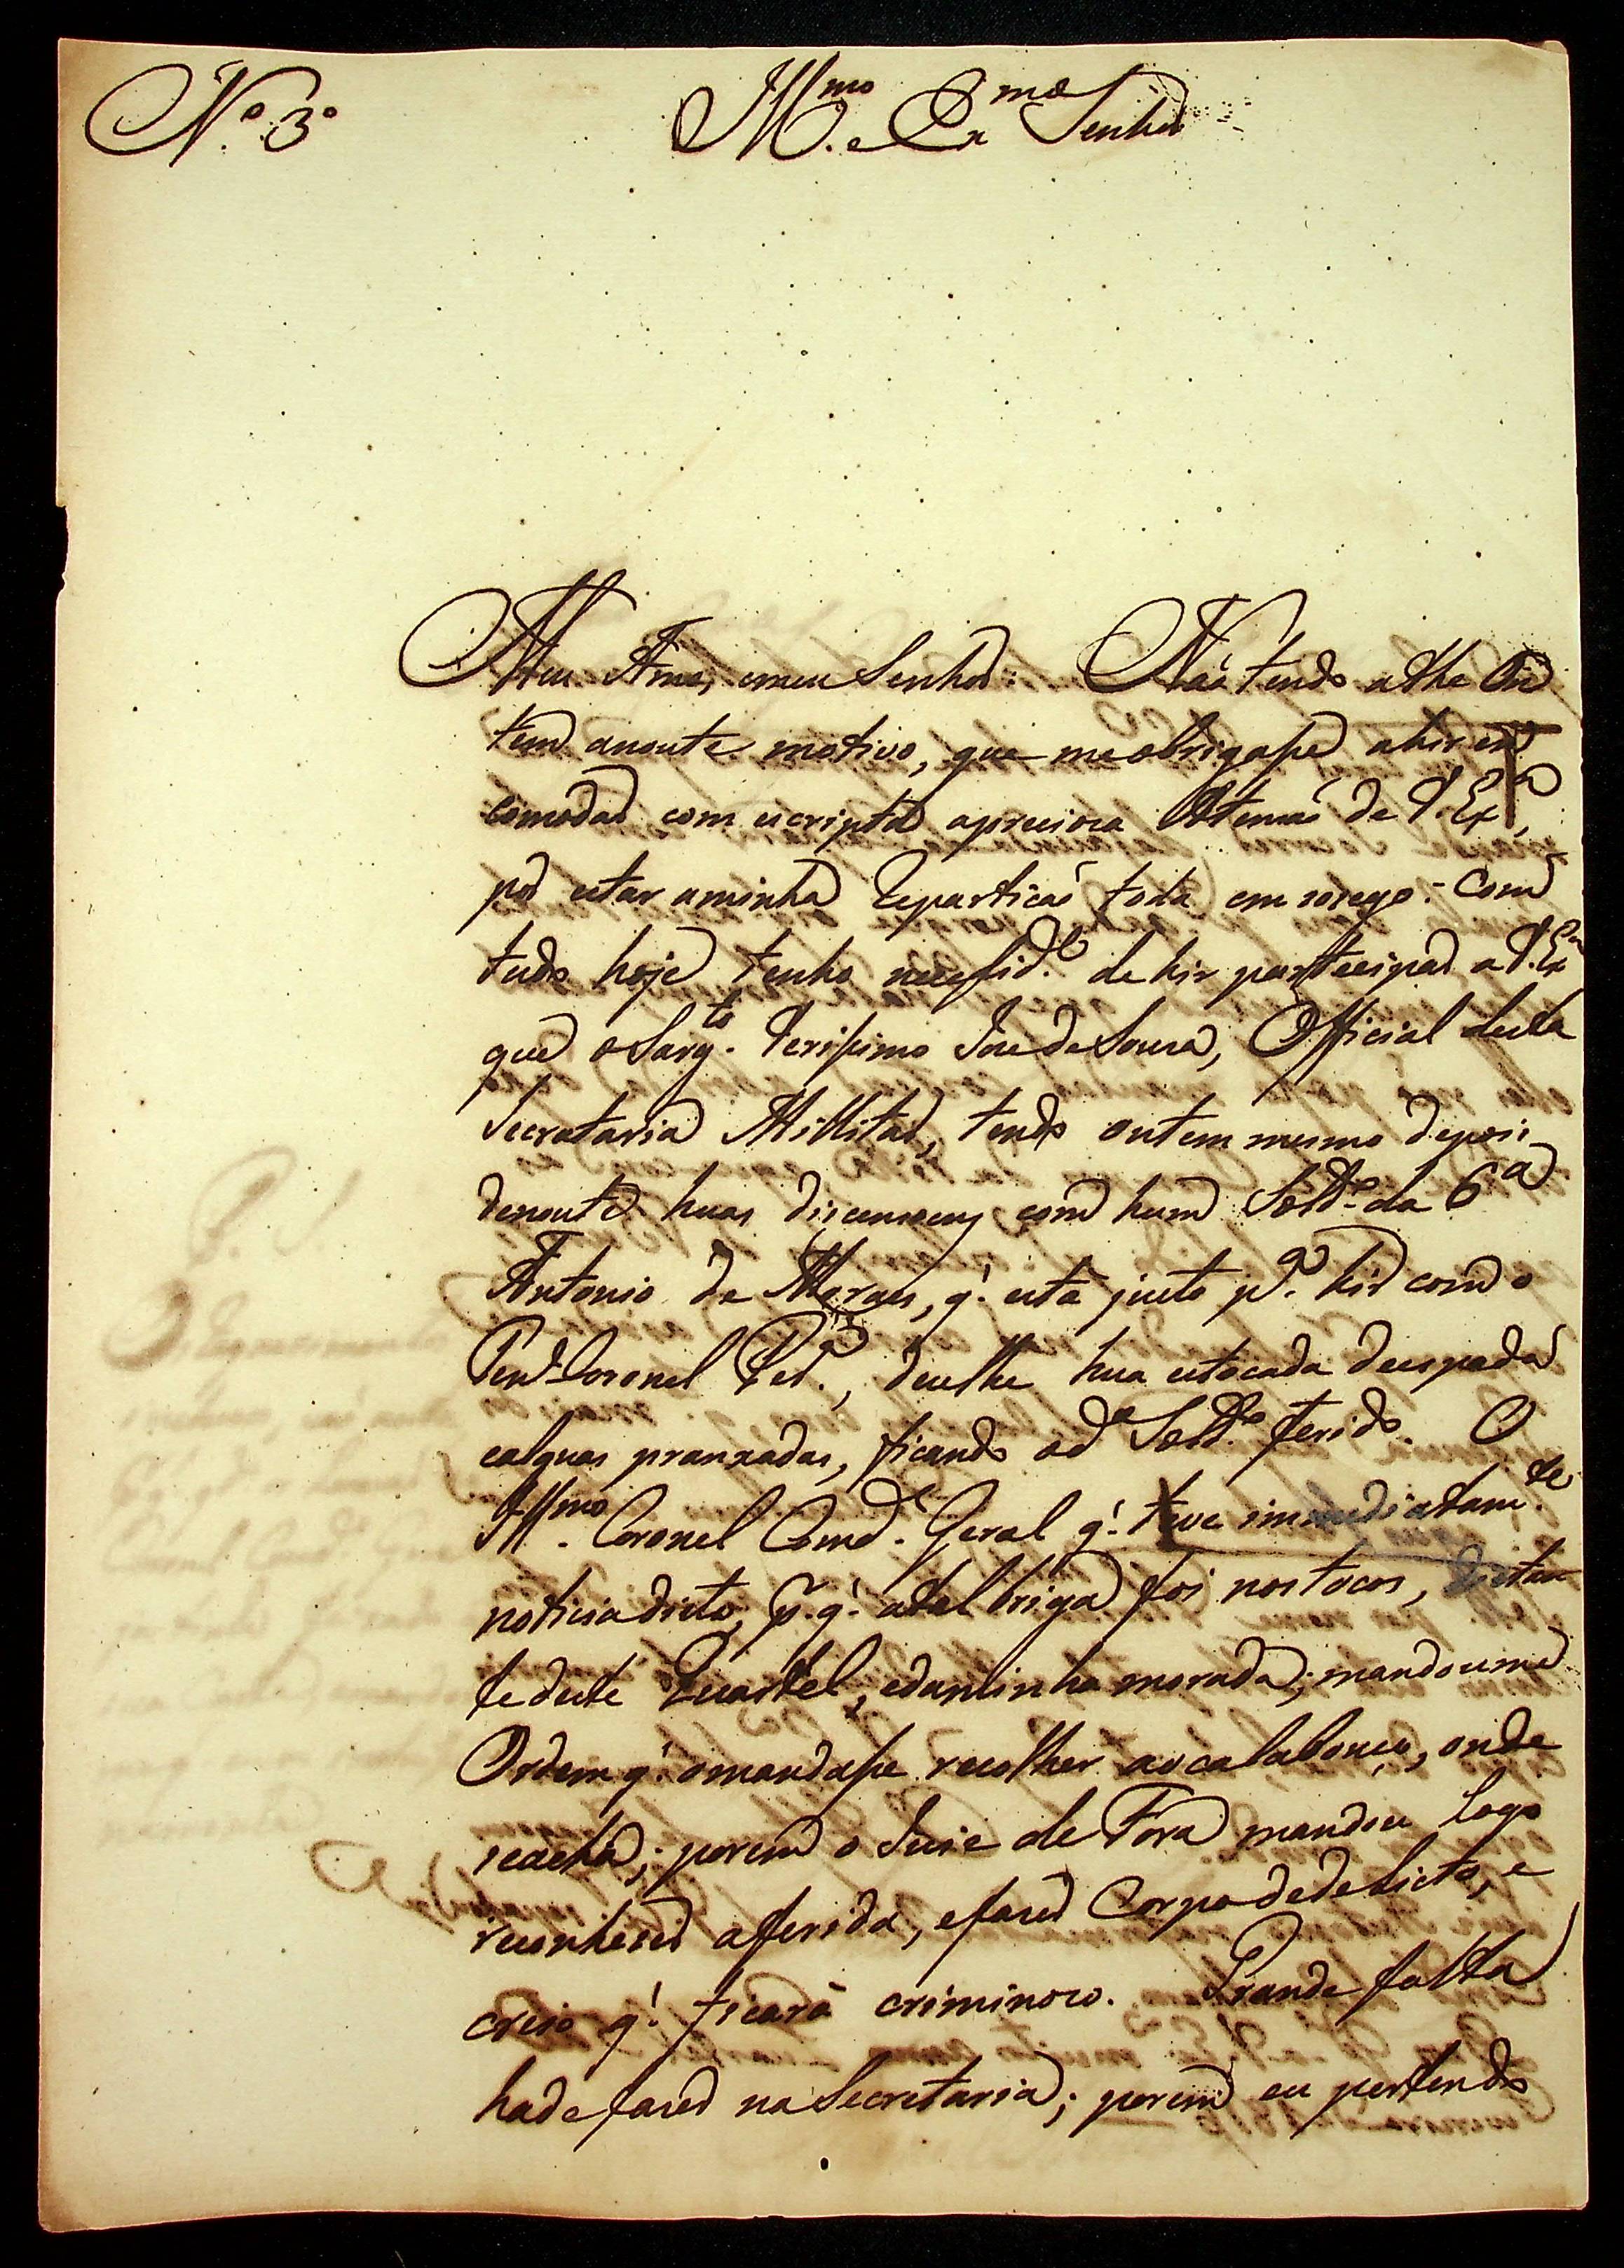 N.º 3º
Ill.mo e Ex.mo Senhor
Meu Amo, e meu Senhor: Não tendo athe On
tem anoute motivo, que me obrigasse ahir en
comodar com escripta apreciosa Atensaó de V. Ex.ª,
por estar aminha Repartiçaó toda em socego: Com
tudo hoje tenho necessid.e de hir partecipar a V. Ex.ª
que o Sarg.to Verissimo Joze de Souza, Official desta
Secretaria Millitar, tendo ontem mesmo depois
denoute huas discensoens com hum Sold.º da 6ª
Antonio de Moraes, q.' está justo p.ª hir com o
Ten.e Coronel, deulhe hua estocada de espada
ealguas pranxadas, ficando o d.º Sold.º ferido. O
Ill.mo Coronel Comd.e Geral q.' teve immediatam.te
noticia disto, p.q.' atal briga foi nos tocos, distan
te deste Quartel, edaminha morada; mandoume
Ordem q.' omandasse recolher ao calabouço, onde
se acha; porem o Juis de Fora mandou logo
reconhecer aferida, efazer Corpo dedelicto, e
creio q.' ficará criminozo. Grande falta
hade fazer na Secretaria; porem eu pertendo
P. S.